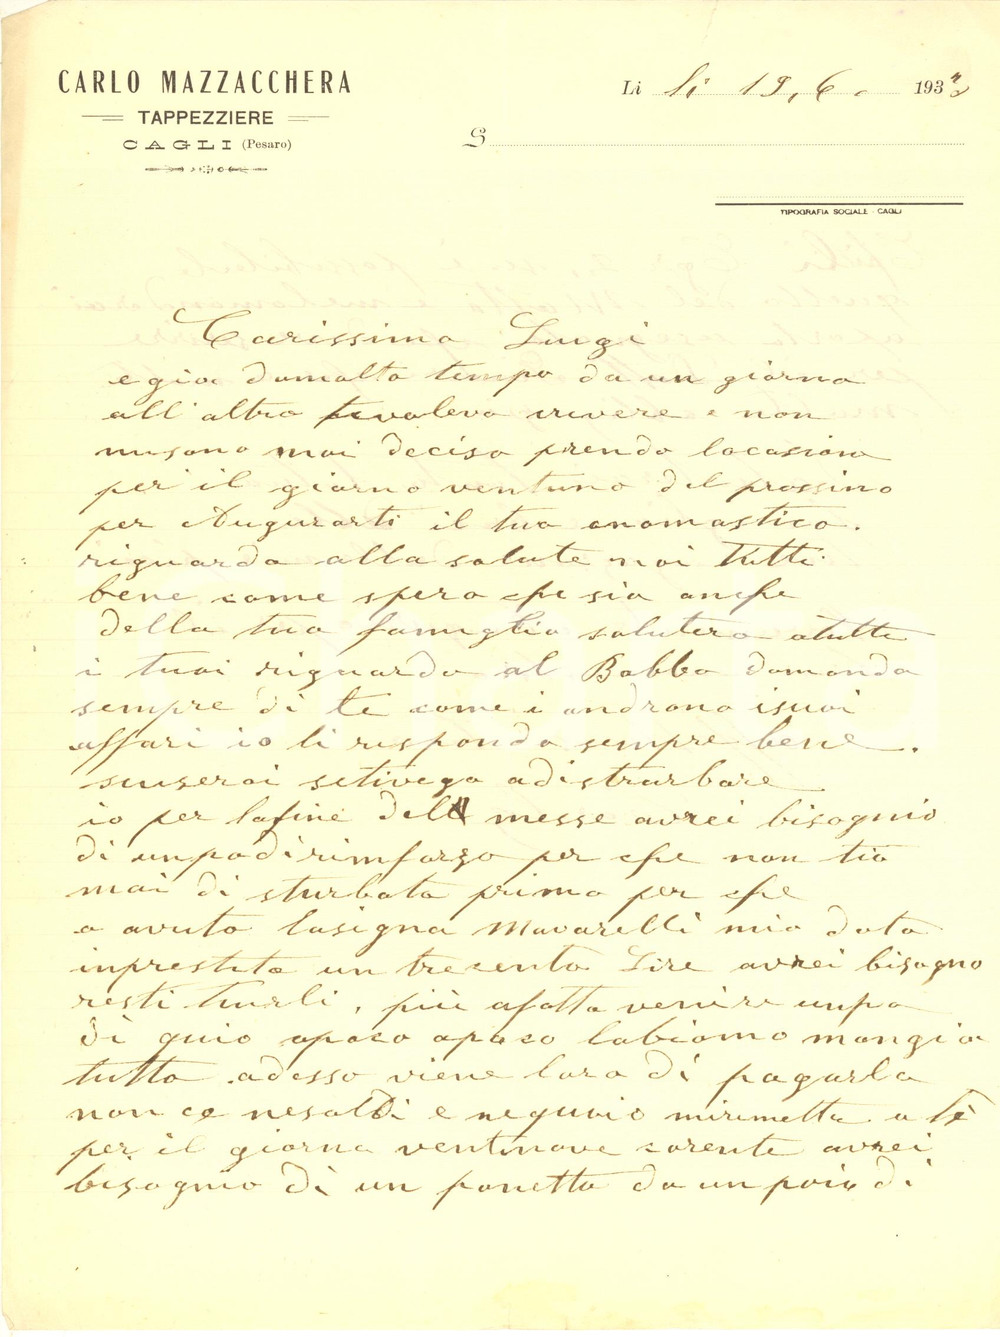 CARLO MAZZACCHERA
TAPPEZZIERE
CAGLI (Pesaro)
Li li 19, 6. 1933
S
TIPOGRAFIA SOCIALE - CAGLI
Carissimo Luigi
e gia damolto tempo da un giorno
all'altro tivolevo scrivere e non
misono mai deciso prendo locasione
per il giorno ventuno del prossimo
per Augurarti il tuo onomastico.
riguardo alla salute noi Tutti
bene come spero che sia anche
della tua famiglia saluterai atutti
i tuoi riguardo al Babbo domanda
sempre di te come i andrano isuoi
affari io li rispondo sempre bene.
scuserai setivego adistrurbare
io per lafine del messe avrei bisognio
di unpodirimforzo per che non tio
mai disturbato prima per che
o avuto lasigna Mavarelli mia dato
inprestito un trecento Lire avrei bisogno
restituirli, più afatto venire unpo
di guio apoco apoco labiamo mangia
tutto adesso viene lora di pagarla
non ce ne soldi e neguio mirimetto a Te
per il giorno ventinove corente avrei
bisognio di un panetto da un paio di